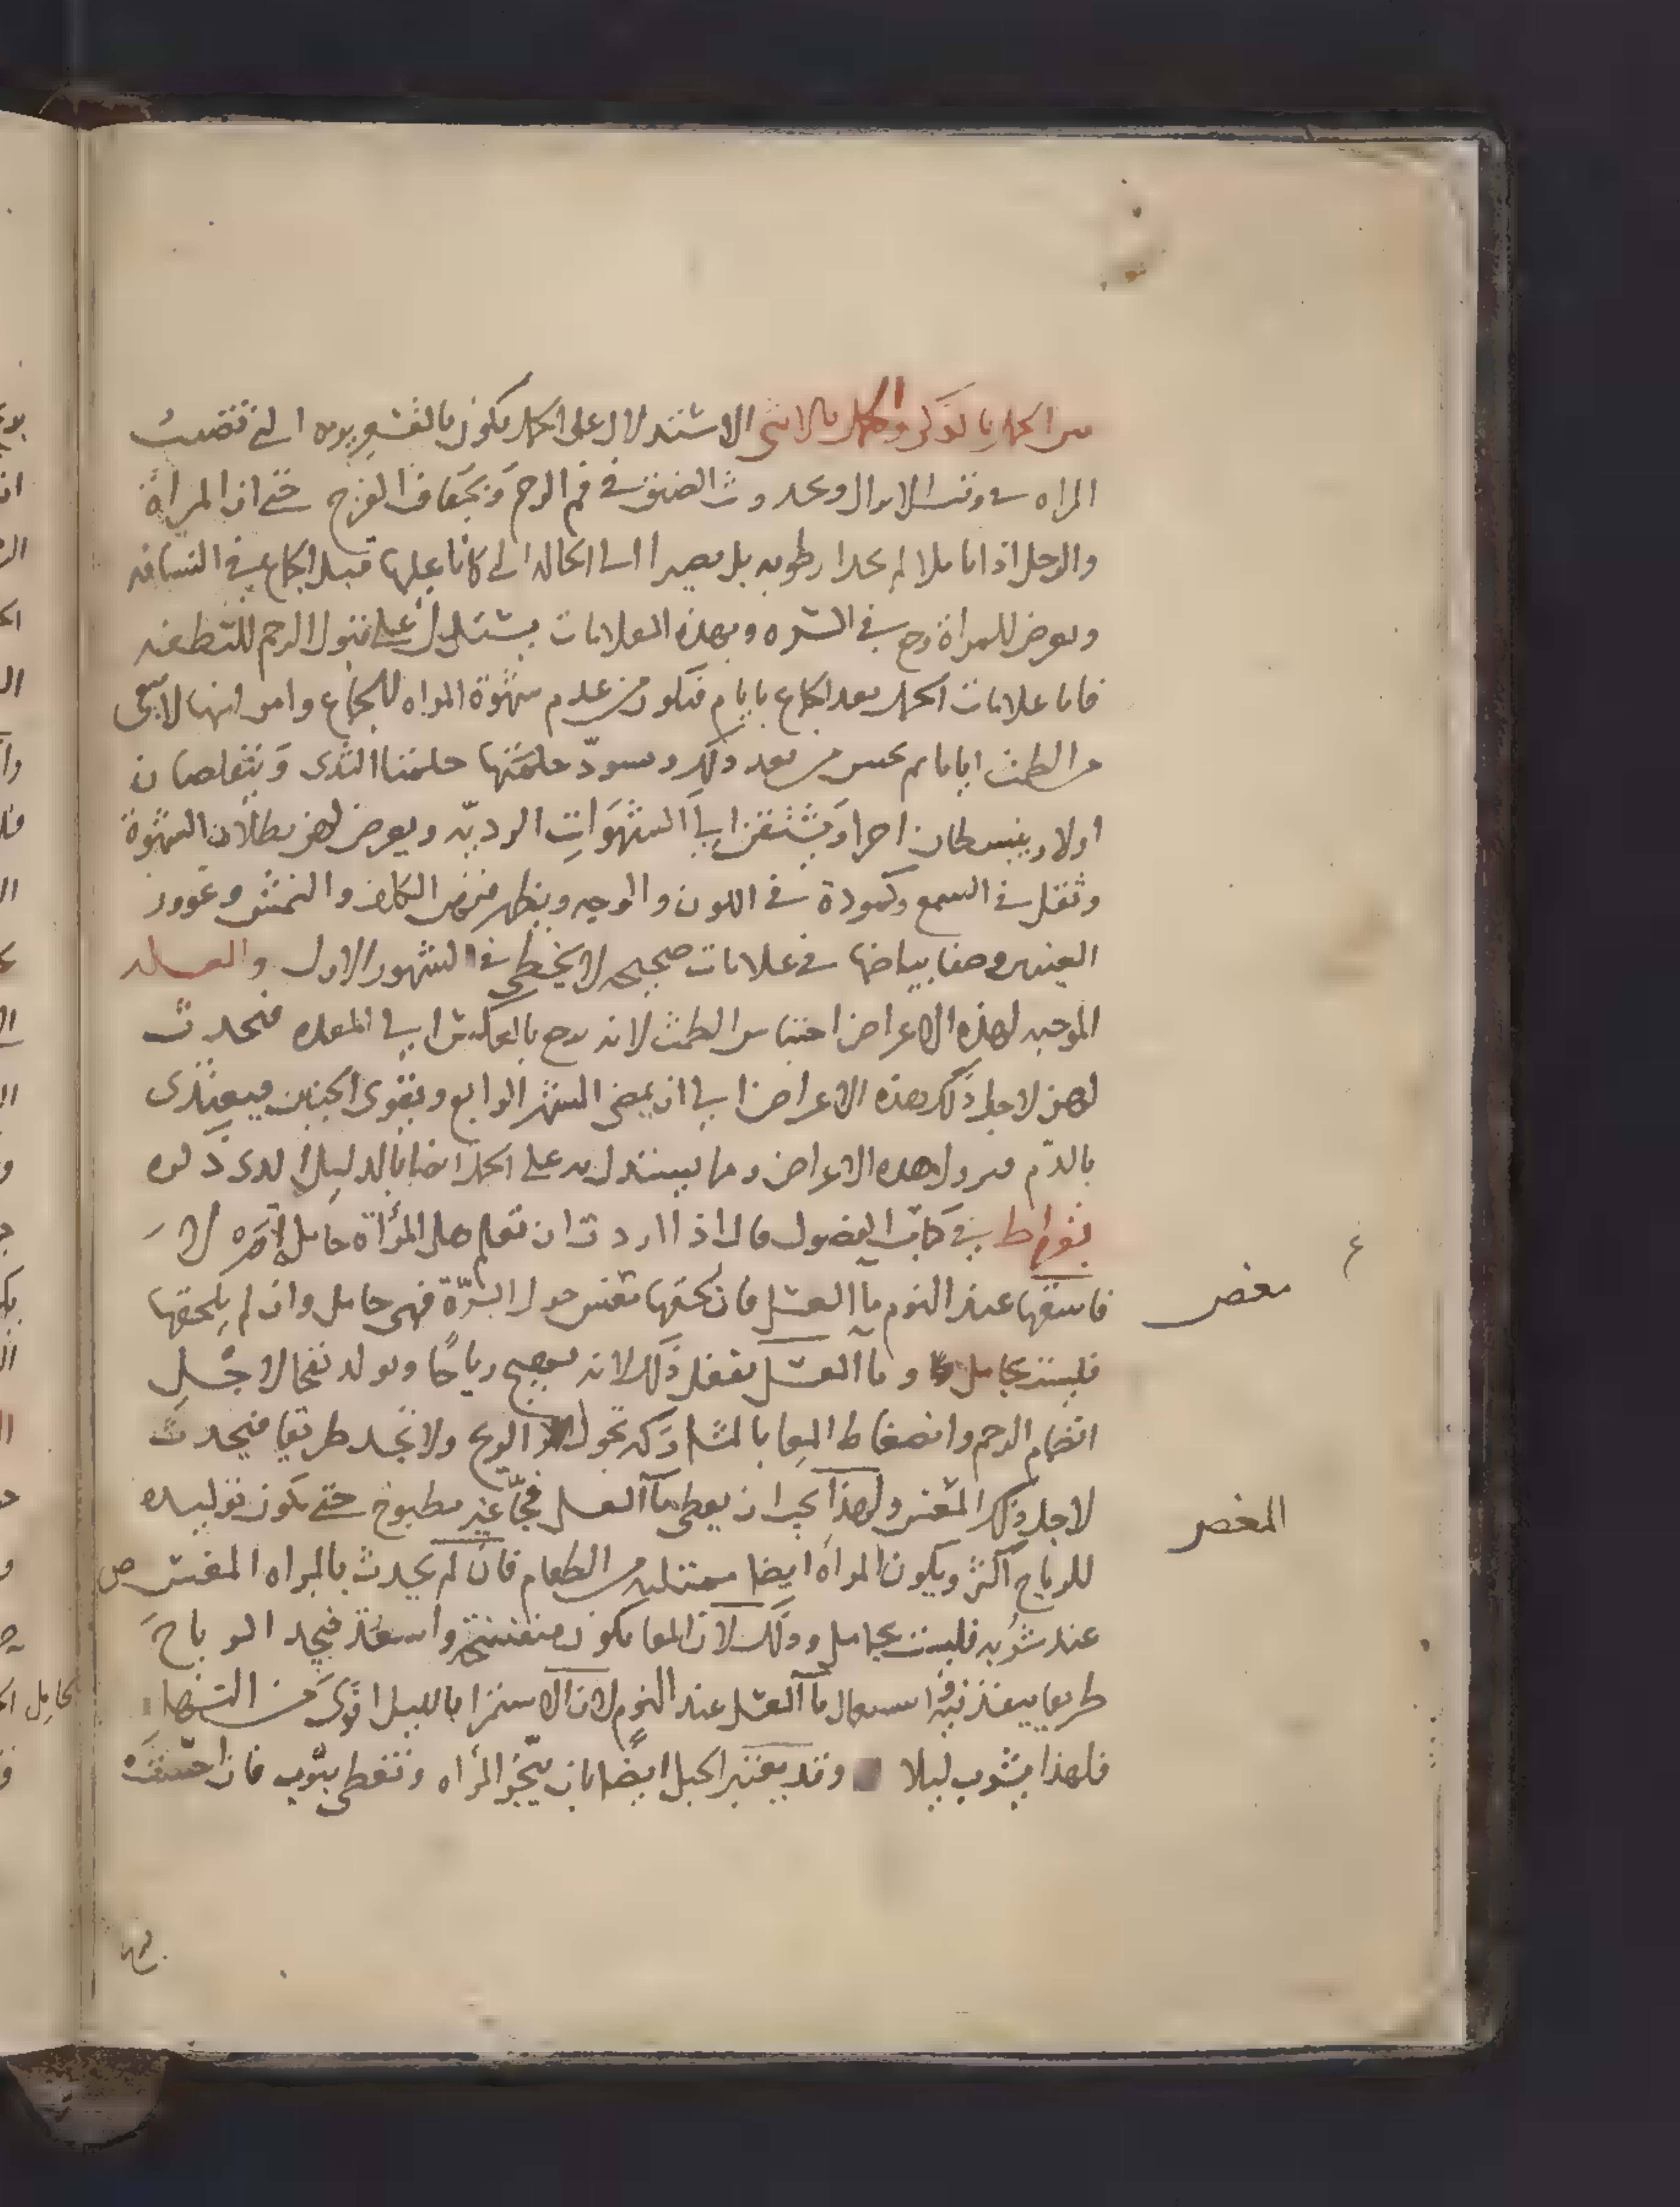 من الحمل بالذكر والحمل بالانثى الاستدلال على الحمل يكون بالقشعريره التي تصيب
المراه في وقت الانزال وبحدوث الضيق في فم الرحم وبجفاف الفرج حتى ان المراة
والرجل اذا تاملا لم يجدا رطوبه بل يصيرا الى الحاله التي كانا عليها قبل الجماع في النشافه
ويعرض للمراة وجع في السره وبهذه العلامات يستدل على قبول الرحم للنطفه
فاما علامات الحمل بعد الجماع بايام فتكون من عدم شهوة المراه للجماع وامر انها لا تنقى
من الطمث اياما ثم يحبس من بعد ذلك وتسود حلمتها حلمتا الثدى ويتقلصان
اولا وينبسطان اخرا ويشتقن الى الشهوات الرديه ويعرض لهن بطلان الشهوة
وثقل في السمع وكمودة في اللون والوجه ويظهر فيهن الكلف والنمش وغوور
العينين وصفا بياضها في علامات صحيحه لا تخطى في الشهور الاول والعله
الموجبه لهذه الاعراض احتباس الطمث لانه يرجع بالعكس الى المعده فتحدث
لهن لاجل ذلك هذه الاعراض الى ان يمضى الشهر الرابع ويقوى الجنين فيغتذى
بالدم فيزول هذه الاعراض ومما يستدل به على الحمل ايضا بالدليل الذى ذكره
بقراط في كتاب الفصول قال اذا اردت ان تعلم هل المرأة حامل ام لا
فاسقها عند النوم ما العسل فان لحقها مغس حول السرة فهى حامل وان لم يلحقها
فليست بحامل وما العسل يفعل ذلك لانه يهيج رياحا ويولد نفخا لاجل
انضمام الرحم وانضغاط المعا بالمشاركه تجول الريح ولا تجد طريقا فيحدث
لاجل ذلك المغس ولهذا يجب ان يعطى ما العسل فجا غير مطبوخ حتى يكون توليده
للرياح اكثر ويكون المراه ايضا ممتليه من الطعام فان لم يحدث بالمراه المغس ص
عند شربه فليست بحامل وذلك لان المعا يكون منفتح واسعة فيجد الرياح
طريقا ينفذ فيه استعمال ما العسل عند النوم لان الاستمرا بالليل اقوى من النهار
فلهذا يشرب ليلا وقد يعتبر الحبل ايضا بان تبخر المراه وتغطى بثوب فان احست
مغص
المغص